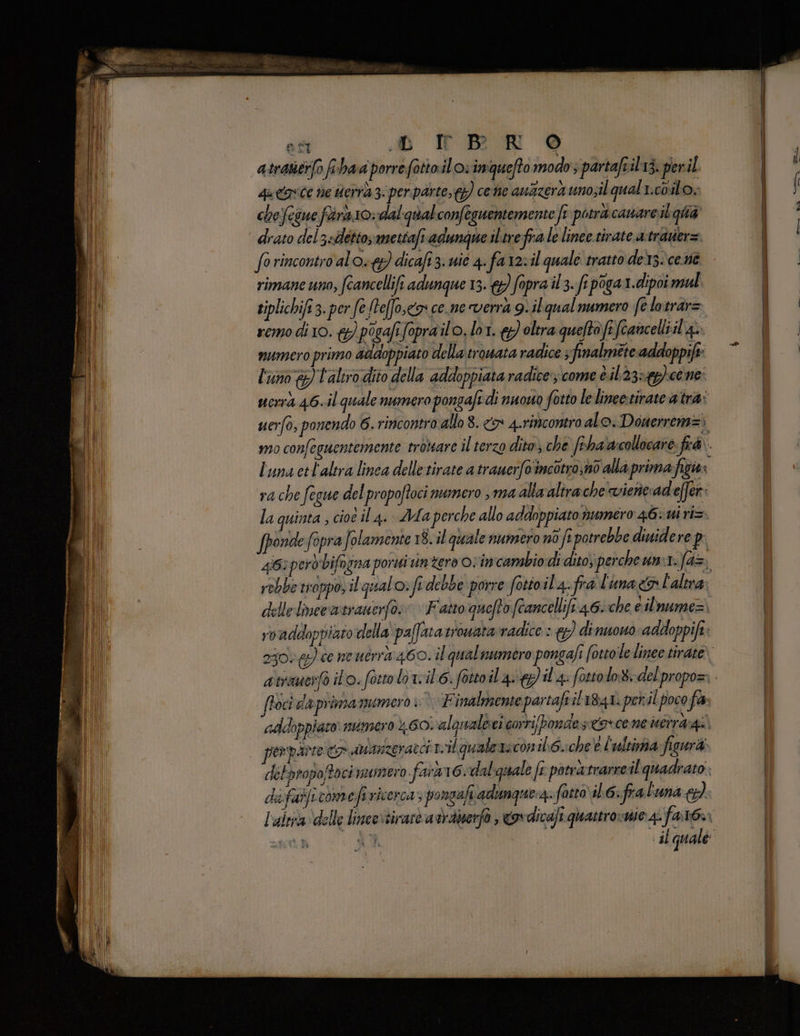 LIBRO
atrauerso si ha a porre sotto il 0. in questo modo; partasi il 13. per il
4. & ce ne uerrà 3. per parte, & ce ne auãzerà uno, il qual 1. cõ il 0.
che segue farà 10. dal qual conseguentemente si potrà cauare il qua
drato del 3. detto, mettasi adunque il tre fra le linee tirate a trauer=
so rincontro al 0. & dicasi 3. uie 4. fa 12. il quale tratto de 13. ce ne
rimane uno, scancellisi adunque 13. & sopra il 3. si põga 1. dipoi mul
tiplichisi 3. per se stesso, & ce ne verrà 9. il qual numero se lo trar=
remo di 10. & põgasi sopra il 0. lo 1. & oltra questo si scancelli il 4.
numero primo addoppiato della trouata radice; finalmẽte addoppisi
l'uno & l'altro dito della addoppiata radice, come è il 23. & ce ne
uerrà 46. il quale numero pongasi di nuouo sotto le linee tirate a tra
uerso, ponendo 6. rincontro allo 8. & 4. rincontro al 0. Douerrem=
mo conseguentemente trouare il terzo dito, che si ha a collocare fra
l'una et l'altra linea delle tirate a trauerso incõtro, nõ alla prima figu
ra che segue del propostoci numero, ma alla altra che viene ad esser
la quinta, cioè il 4. Ma perche allo addoppiato numero 46. ui ri=
sponde sopra solamente 18. il quale numero nõ si potrebbe diuidere p
46. però bisogna porui un zero 0. in cambio di dito, perche un 1. sa=
rebbe troppo, il qual 0. si debbe porre sotto il 4. fra l'una & l'altra
delle linee a trauerso. Fatto questo scancellisi 46. che è il nume=
ro addoppiato della passata trouata radice: & di nuouo addoppisi
230. & ce ne uerrà 460. il qual numero pongasi sotto le linee tirate
a trauerso il 0. sotto lo 1. il 6. sotto il 4. & il 4. sotto lo 8. del propo=
stoci da prima numero. Finalmente partasi il 1841. per il poco fa
addoppiato numero 460. al quale ei corrisponde, & ce ne uerrà 4.
per parte & auanzeracci 1. il quale 1. con il 6. che è l'ultima figura
del propostoci numero farà 16. dal quale si potrà trarre il quadrato
da farsi come si ricerca, pongasi adunque 4. sotto il 6. fra l'una &
l'altra delle linee tirate a trauerso, & dicasi quattro uie 4. fa 16.
il quale